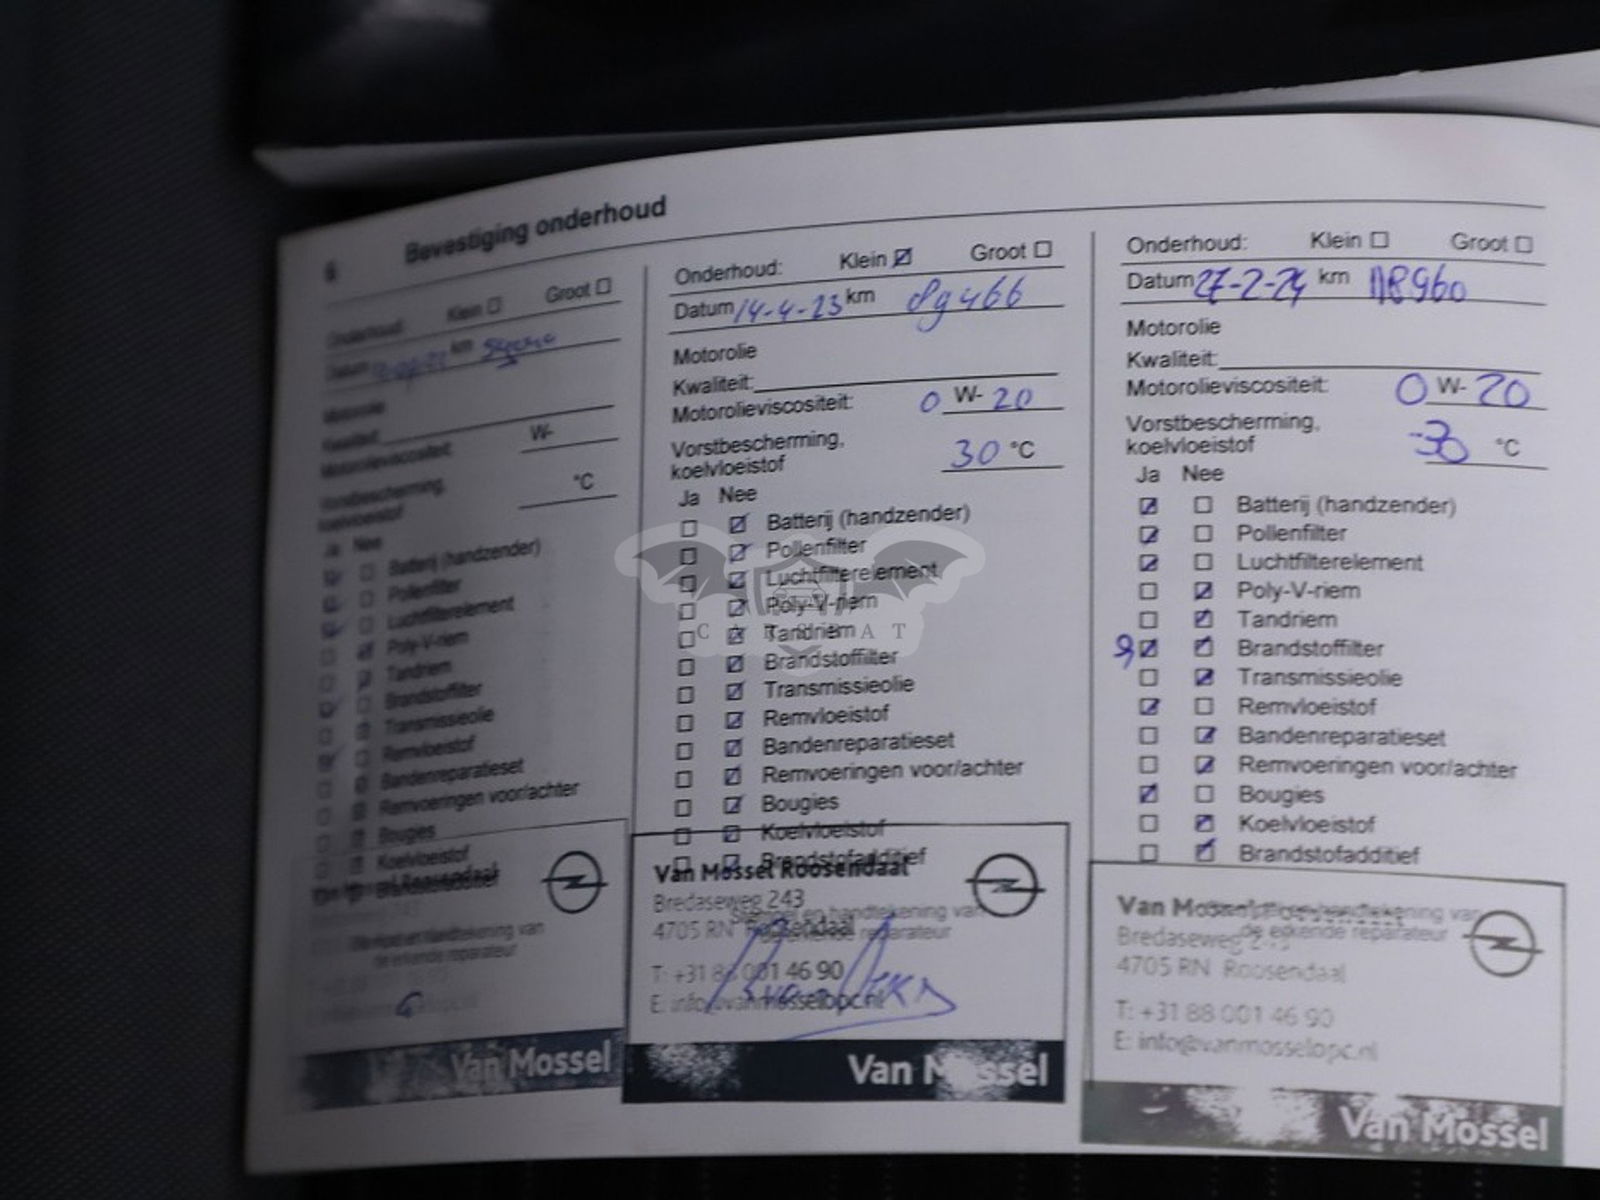 6 Bevestiging onderhoud
Onderhoud: Klein Groot
Datum km
Motorolie
Kwaliteit:
Motorolieviscositeit: W-
Vorstbescherming,
koelvloeistof °C
Ja Nee
Batterij (handzender)
Pollenfilter
Luchtfilterelement
Poly-V-riem
Tandriem
Brandstoffilter
Transmissieolie
Remvloeistof
Bandenreparatieset
Remvoeringen voor/achter
Bougies
Koelvloeistof
Roosendaal
Stempel en handtekening van
de erkende reparateur
Van Mossel
Onderhoud: Klein Groot
Datum 14-4-23 km 89466
Motorolie
Kwaliteit:
Motorolieviscositeit: 0 W- 20
Vorstbescherming,
koelvloeistof 30 °C
Ja Nee
Batterij (handzender)
Pollenfilter
Luchtfilterelement
Poly-V-riem
Tandriem
Brandstoffilter
Transmissieolie
Remvloeistof
Bandenreparatieset
Remvoeringen voor/achter
Bougies
Koelvloeistof
Brandstofadditief
Van Mossel Roosendaal
Bredaseweg 243
Stempel en handtekening van
4705 RN Roosendaal
de erkende reparateur
T: +31 88 001 46 90
E: info@vanmosselopc.nl
Van Mossel
Onderhoud: Klein Groot
Datum 27-2-24 km 118960
Motorolie
Kwaliteit:
Motorolieviscositeit: 0 W- 20
Vorstbescherming,
koelvloeistof -30 °C
Ja Nee
Batterij (handzender)
Pollenfilter
Luchtfilterelement
Poly-V-riem
Tandriem
Brandstoffilter
Transmissieolie
Remvloeistof
Bandenreparatieset
Remvoeringen voor/achter
Bougies
Koelvloeistof
Brandstofadditief
Van Mossel Roosendaal
Stempel en handtekening van
Bredaseweg 243
de erkende reparateur
4705 RN Roosendaal
T: +31 88 001 46 90
E: info@vanmosselopc.nl
Van Mossel